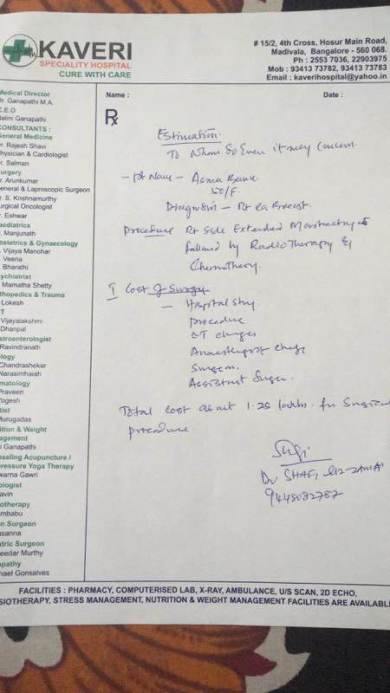 KAVERI
SPECIALITY HOSPITAL
CURE WITH CARE
# 15/2, 4th Cross, Hosur Main Road,
Madivala, Bangalore - 560 068.
Ph : 2553 7036, 22903975
Mob : 93413 73782, 93413 73783
Email : kaverihospital@yahoo.in
Medical Director
Dr. Ganapathi M.A.
C.E.O
Ganapathi
CONSULTANTS :
General Medicine
Rajesh Shavi
Physician & Cardiologist
Salman
Surgery
Arunkumar
General & Laproscopic Surgeon
S. Krishnamurthy
Surgical Oncologist
Eshwar
Paediatrics
Manjunath
Obstetrics & Gynaecology
Vijaya Manohar
Veena
Bharathi
Psychiatrist
Mamatha Shetty
Orthopedics & Trauma
Lokesh
Vijayalakshmi
Dhanpal
Gastroenterologist
Ravindranath
Chandrashekar
Narasimhaiah
Praveen
Yogesh
Murugadas
Nutrition & Weight
Management
Ganapathi
Counseling Acupuncture /
Acupressure Yoga Therapy
Gawri
Murthy
Gonsalves
Name :
Date :
Rx
Estimation
To Whom So Ever it may Concern
- Pt Name - Asma Banu
50/F.
Diagnosis - Rt Ca Breast.
Procedure Rt Side Extended Mastectomy
followed by RadioTherapy &
Chemotherapy
I Cost of Surgery
- Hospital stay
procedure
OT charges
Anaesthesist charge
Surgeon.
Assistant Surgeon.
Total Cost about 1.25 lakhs for Surgical
procedure
9448082787
FACILITIES : PHARMACY, COMPUTERISED LAB, X-RAY, AMBULANCE, U/S SCAN, 2D ECHO,
PHYSIOTHERAPY, STRESS MANAGEMENT, NUTRITION & WEIGHT MANAGEMENT FACILITIES ARE AVAILABLE